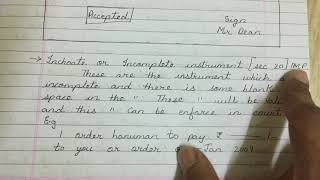 Accepted
Sign
Mr Dean
→ Inchoate or Incomplete instrument [sec 20] IMP
These are the instrument which
incomplete and there is some blank
space in the " These " will be
and this " can be enforce in court
Eg
I order hanuman to pay ₹
to you or order Jan 2004